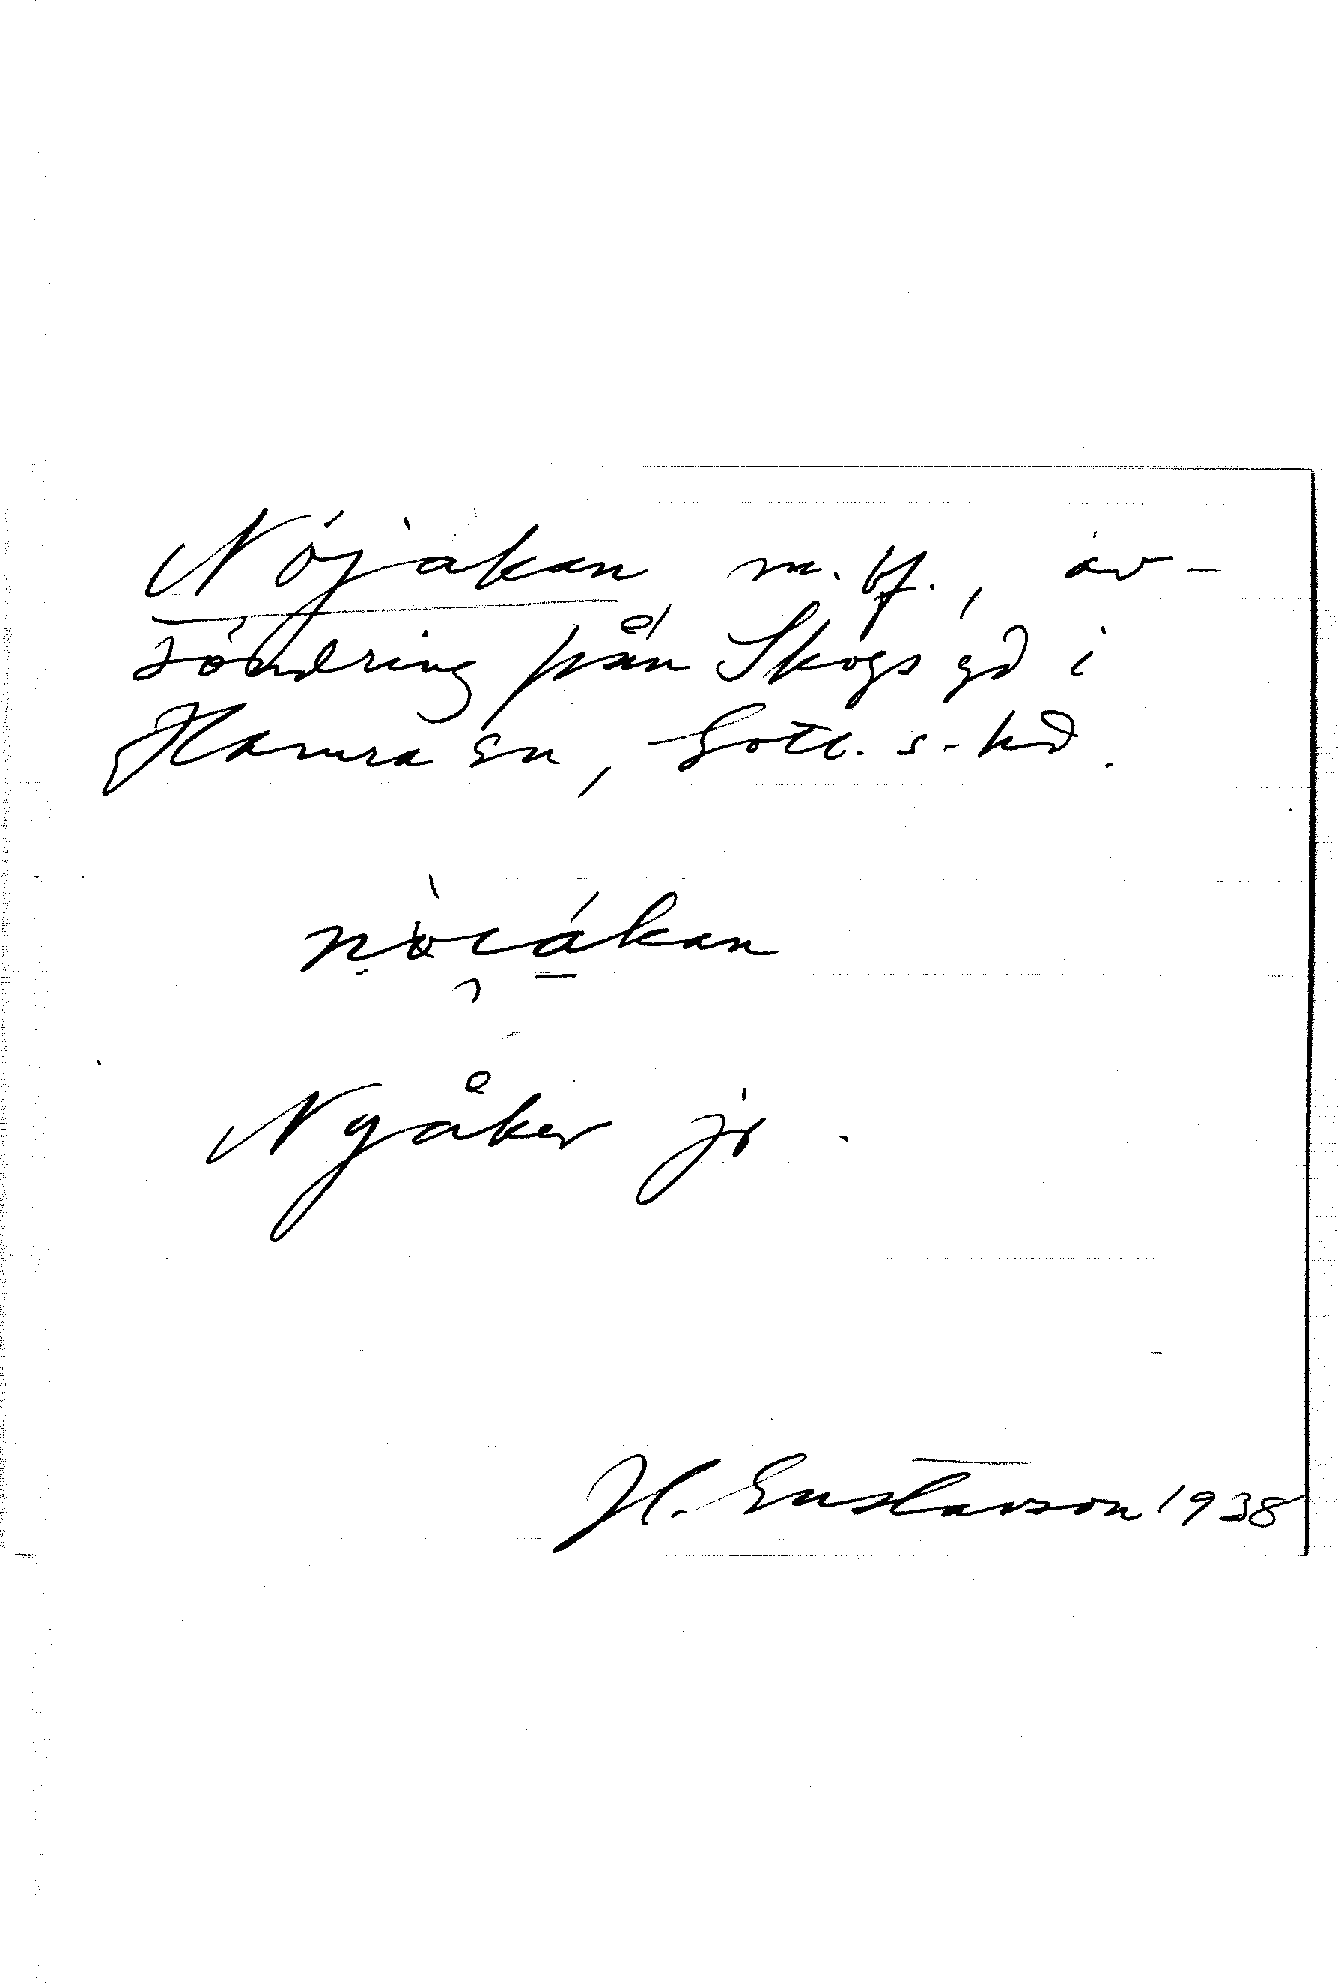 Nöjåkan m. bf., av-
söndring från Skogs gd i
Hamra sn, Gotl. s. hd.
nòi̯ákan
Nyåker jr.
H. Gustavson 1938